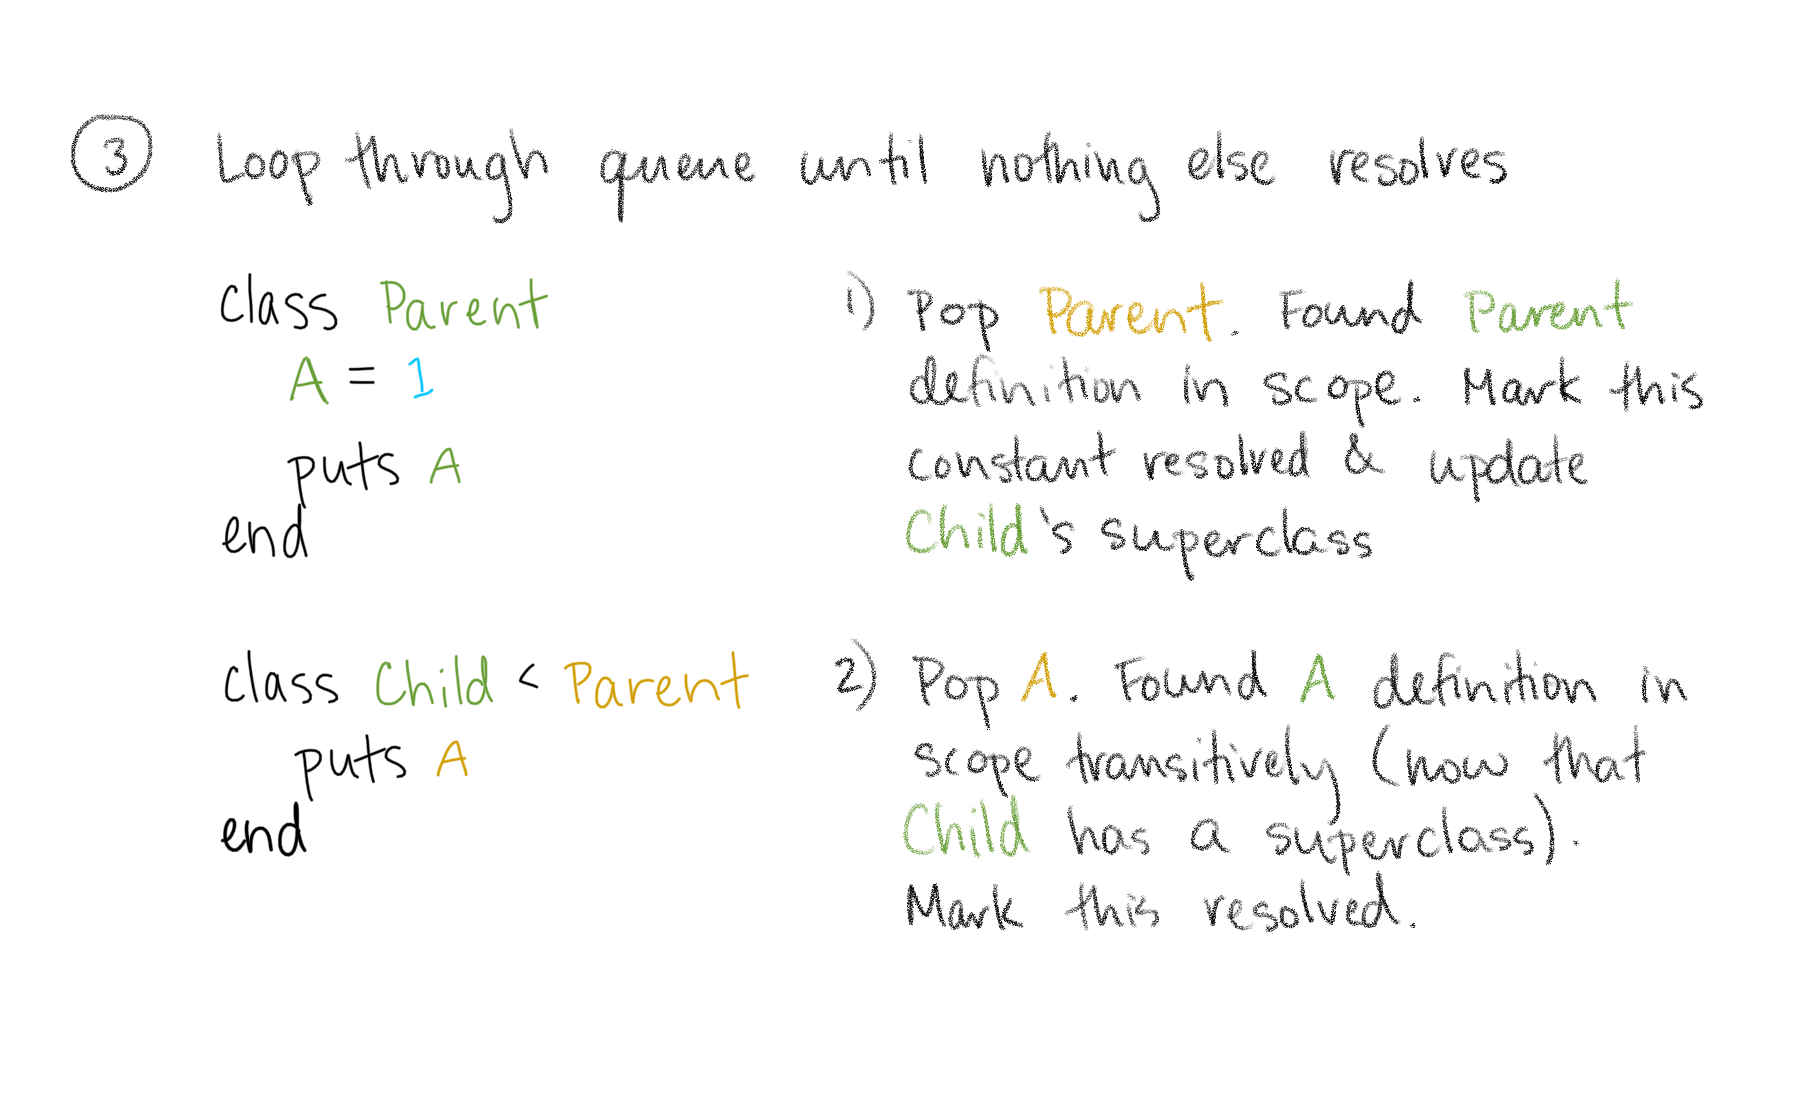 3 Loop through queue until nothing else resolves
class Parent
A = 1
puts A
end
class Child < Parent
puts A
end
1) Pop Parent. Found Parent
definition in scope. Mark this
constant resolved & update
Child's superclass
2) Pop A. Found A definition in
scope transitively (now that
Child has a superclass).
Mark this resolved.